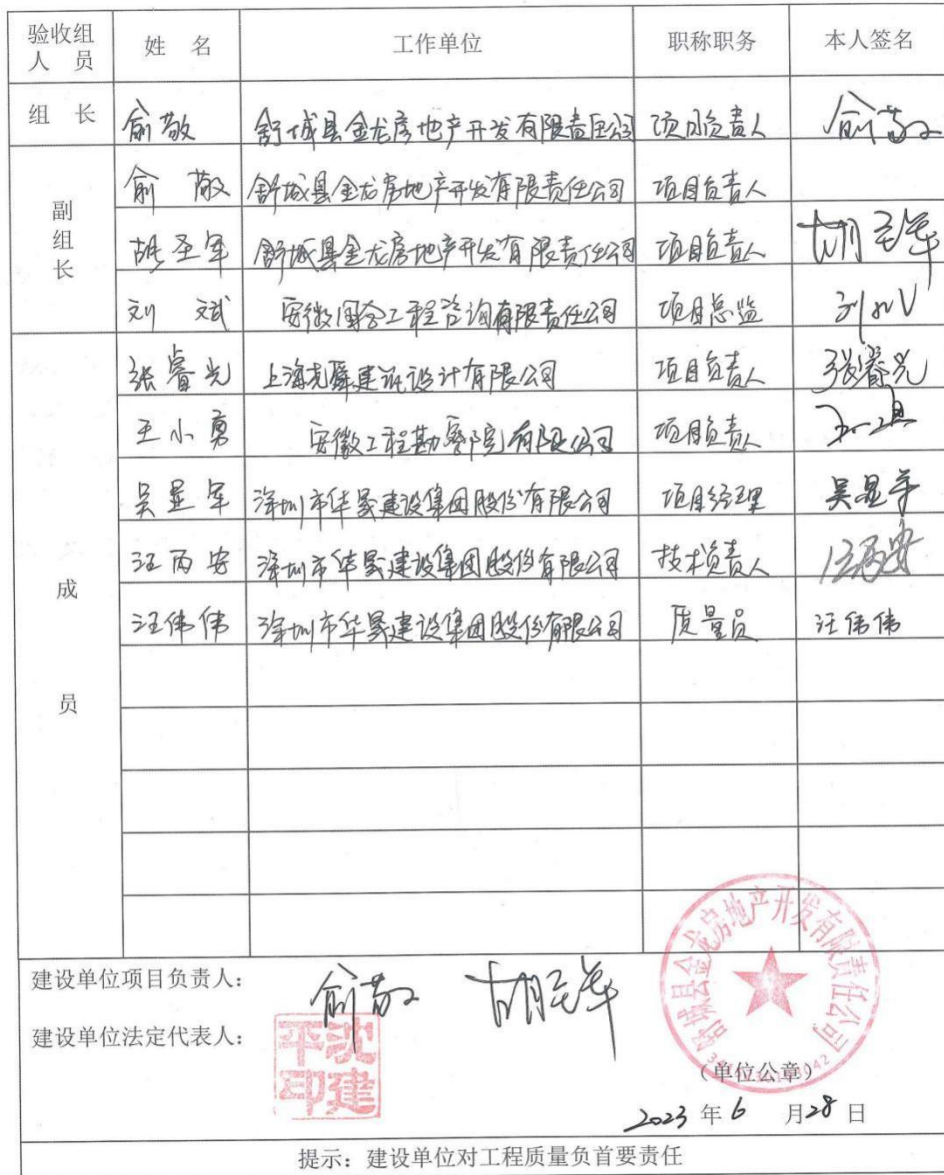 验收组人员 姓 名 工作单位 职称职务 本人签名
组 长 俞敬 舒城县金龙房地产开发有限责任公司 项目负责人 俞敬
副组长 俞 敬 舒城县金龙房地产开发有限责任公司 项目负责人
胡圣军 舒城县金龙房地产开发有限责任公司 项目负责人 胡圣军
刘 斌 安徽国合工程咨询有限责任公司 项目总监
成员 张睿光 上海尧舜建筑设计有限公司 项目负责人 张睿光
王小勇 安徽工程勘察院有限公司 项目负责人
吴显军 深圳市华晟建设集团股份有限公司 项目经理 吴显军
汪丙安 深圳市华晟建设集团股份有限公司 技术负责人 汪丙安
汪伟伟 深圳市华晟建设集团股份有限公司 质量员 汪伟伟
建设单位项目负责人: 俞敬 胡圣军
建设单位法定代表人: 沈建平印
舒城县金龙房地产开发有限责任公司
(单位公章)
2023 年 6 月 28 日
提示: 建设单位对工程质量负首要责任